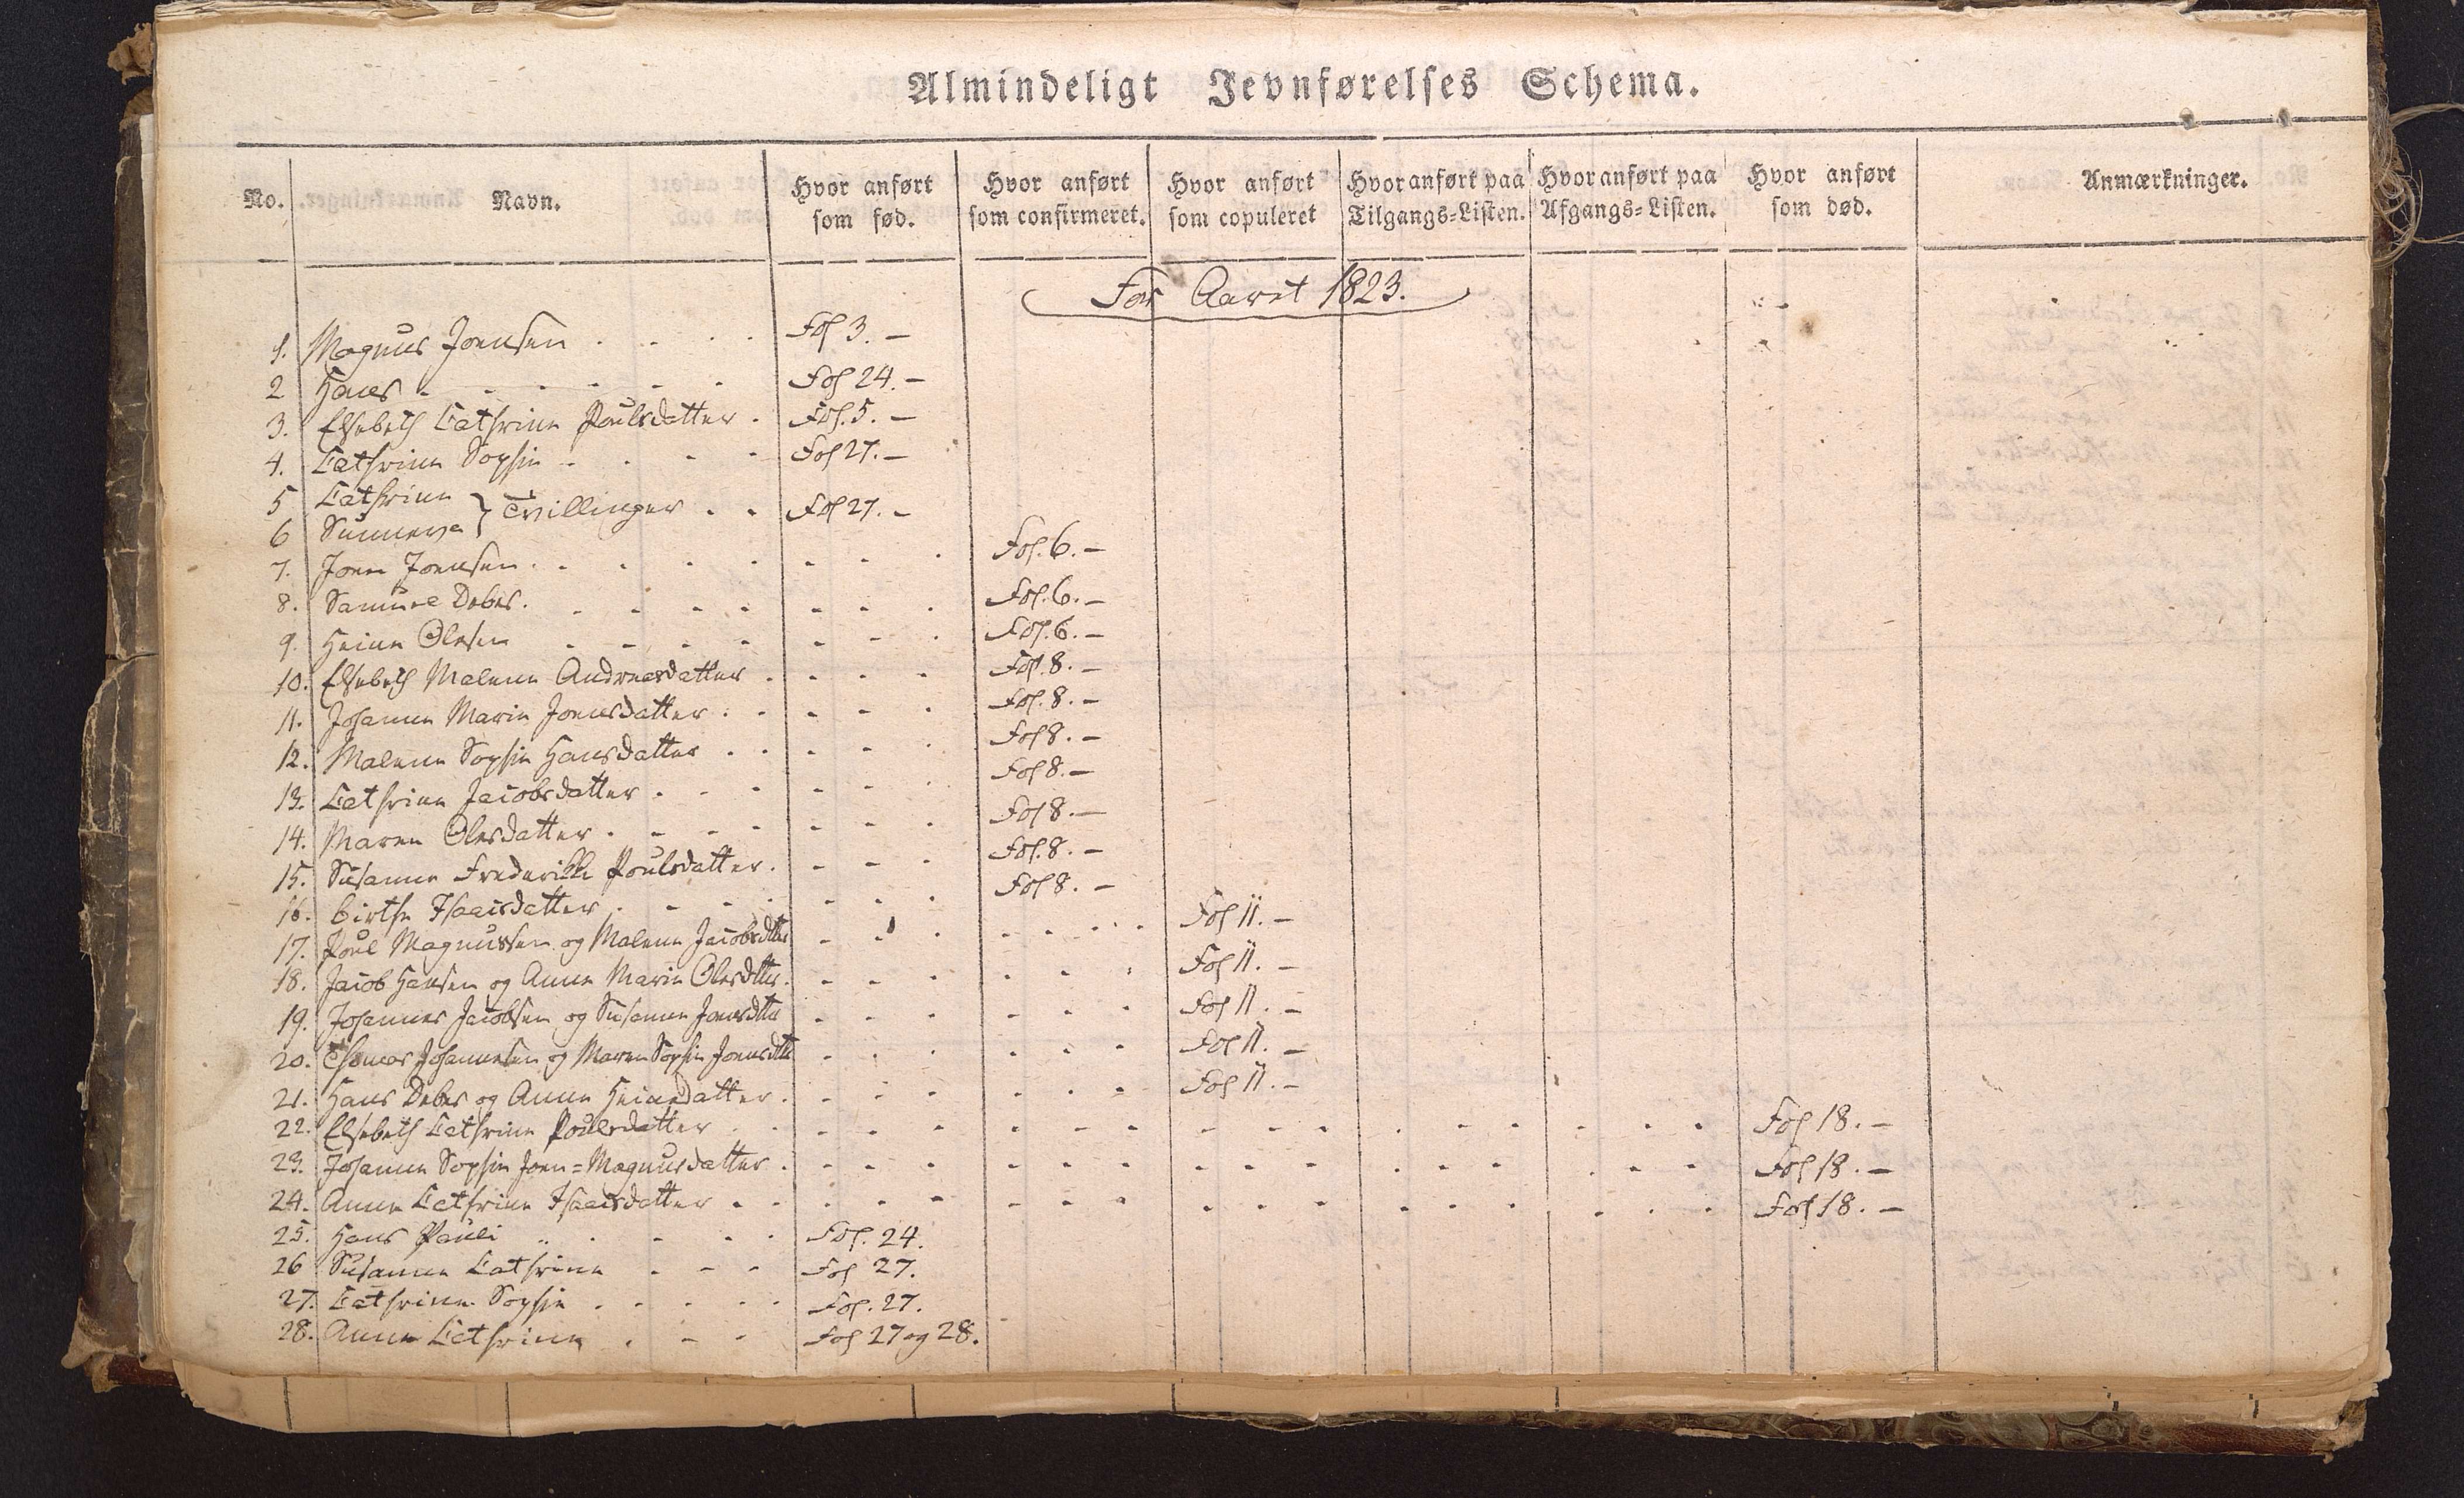 Almindeligt Jevnførelses Schema.
No. Navn. Hvor anført som fød. Hvor anført som confirmeret. Hvor anført som copuleret Hvor anført paa Tilgangs=Listen. Hvor anført paa Afgangs=Listen. Hvor anført som død. Anmærkninger.
For Aaret 1823.
1. Magnus Joensen . . . . Fol 3. –
2 Hans - - - - - - Fol 24. –
3. Elsebeth Cathrine Poulsdatter . Fol. 5. –
4. Cathrine Sophie - . - - Fol 27. –
5 Cathrine } Tvillinger . . Fol 27. –
6 Sunneva
7. Joen Joensen . . . . . . . . Fol. 6. –
8. Samuel Debes . . - - - - - . Fol. 6. –
9. Heine Olesen - - - - - - . Fol. 6. –
10. Elsebeth Malene Andreasdatter . . . - Fol. 8. –
11. Johanne Marie Joensdatter . . - - . Fol. 8. –
12. Malene Sophie Hansdatter . . - - . Fol 8. –
13. Cathrine Jacobsdatter . - - - - . Fol 8. –
14. Maren Olesdatter . - - - - - . Fol 8. –
15. Susanne Frederikke Poulsdatter . - - . Fol. 8. –
16. Birthe Isaacsdatter . - - . - . . Fol 8. –
17. Poul Magnussen og Malene Jacobsdtter - - . . . . . . Fol 11. –
18. Jacob Hansen og Anne Marie Olesdtter . - - . . - . Fol 11. –
19. Johannes Jacobsen og Susanne Joensdtter . - . - - . Fol 11. –
20. Thomas Johannesen og Maren Sophie Joensdtter - . . . . - Fol 11. –
21. Hans Debes og Anne Heinesdatter . - - - . . - Fol 11. –
22. Elsebeth Cathrine Poulsdatter . . - - - - - - - - - . - - - . . Fol 18. –
23. Johanne Sophie Joen=Magnusdatter . - - - - - - - - - . - - . - - Fol 18. –
24. Anne Cathrine Isaacsdatter . . . - - - - - . . . . . . . . . Fol 18. –
25. Hans Pauli . . - - . Fol. 24.
26 Susanne Cathrine - - - Fol 27.
27. Cathrine Sophie . - - - . Fol. 27.
28. Anne Cathrine . - - Fol 27 og 28.